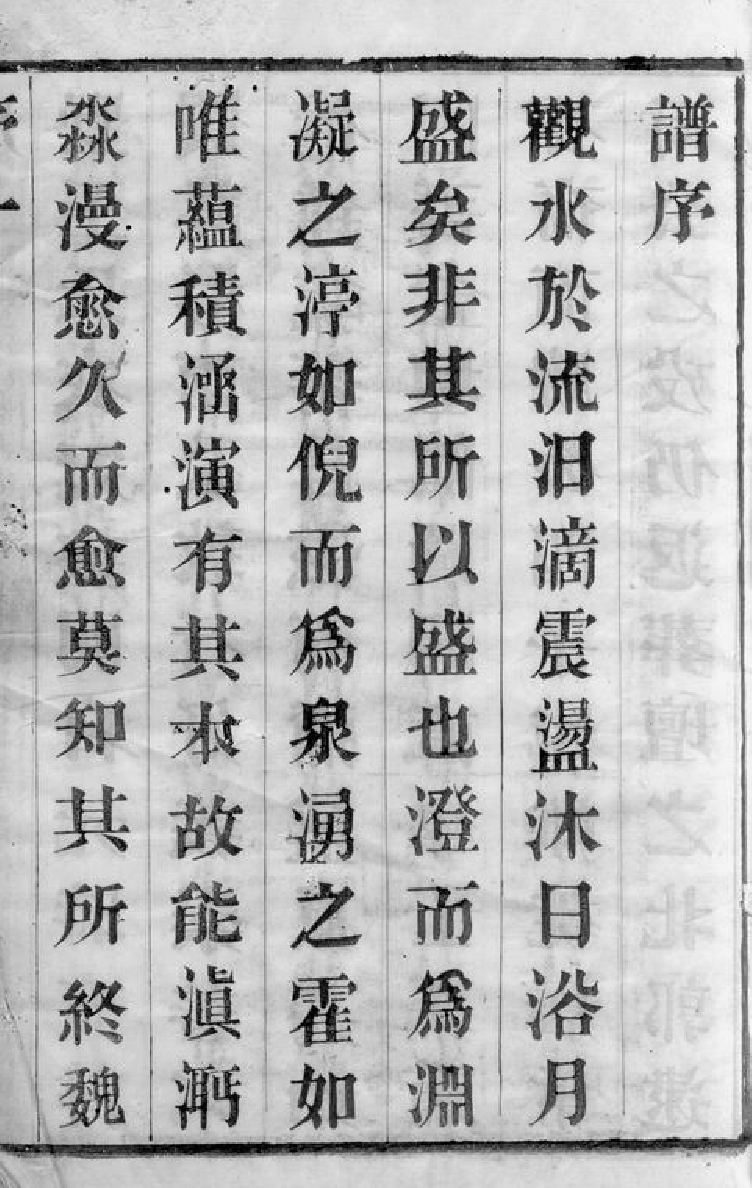 譜序
觀水於流汨滴震盪沐日浴月
盛矣非其所以盛也澄而為淵
凝之渟如倪而為泉湧之霍如
唯蘊積涵演有其本故能滇漰
淼漫愈久而愈莫知其所終魏
序一